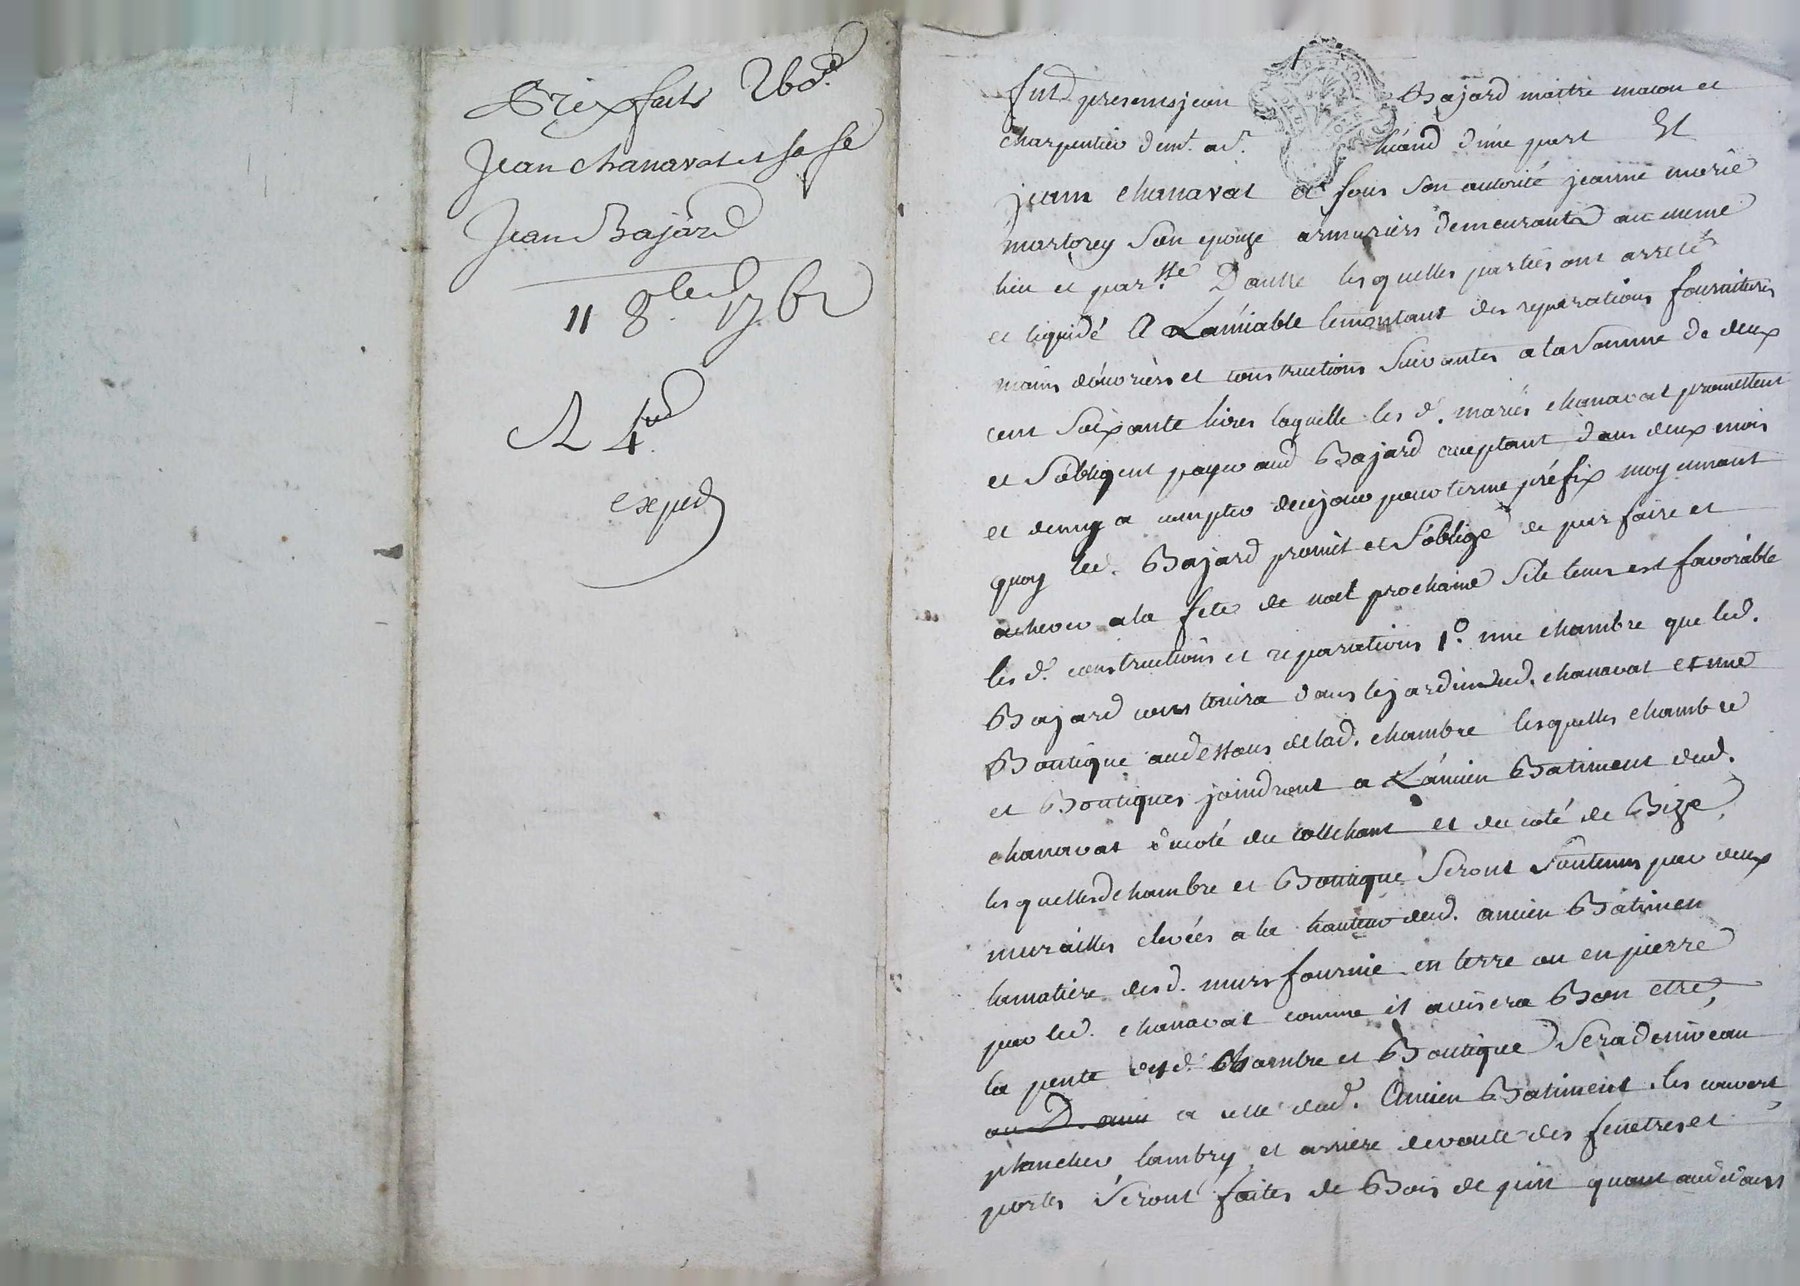 Prix faits 260.#
Jean chanavat et sa fe
Jean Bajard
11 8.bre 1762
R 4
exped
furent presens jean Bajard maitre macon et
charpentier dem.t a S.t héand d'une part Et
jean chanavat et sous son autorité jeanne marie
martorey son epouze armuriers demeurants au meme
lieu et parsse. D'autre lesquelles parties ont arretés
et liquidé A L'amiable le montant des reparations fournitures
mains d'ouvriers et constructions suivantes a la somme de deux
cent soixante livres laquelle les d. mariés chanavat promettent
et s'obligent payer aud Bajard acceptant dans deux mois
et demy a compter de ce jour pour terme préfix moyennant
quoy led. Bajard promet et s'oblige de parfaire et
achever a la fete de noel prochaine si le tems est favorable
les d. constructions et reparations 1.o une chambre que led.
Bajard construira dans le jardin dud. chanavat et une
Boutique au dessous de lad. chambre lesquelles chambre
et Boutiques joindront a L'ancien Batiment dud.
chanavat du coté du couchant et du coté de Bize,
lesquelles d chambre et Boutique seront soutenus par deux
murailles elevées a la hauteur dud. ancien Batimen
la matiere desd. murs fournie en terre ou en pierre
par led. chanavat comme il avisera Bon etre,
la pente desd. Chambre et Boutique sera de niveau
a celle dud. Ancien Batiment. les couvert
plancher, lambry, et arriere devante des fenetres et
portes seront faites de Bois de pin quant au d'dans